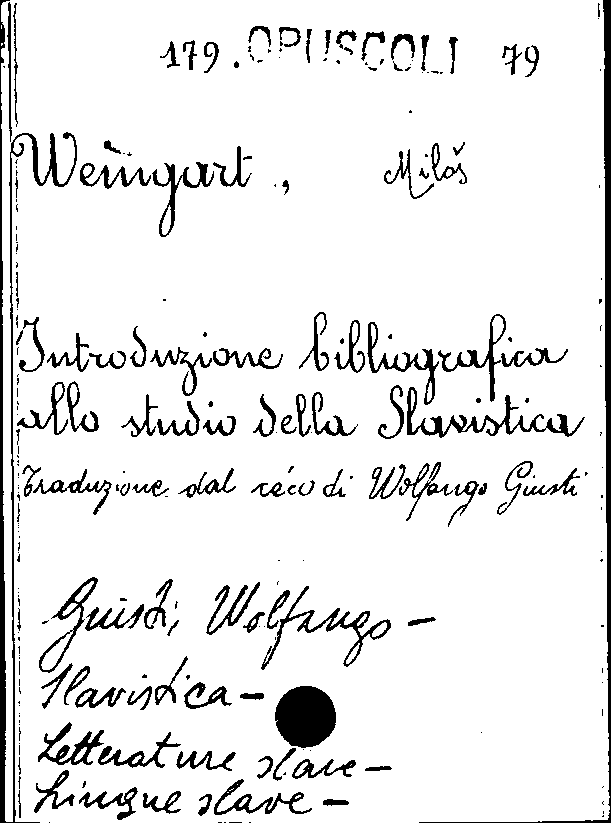 179. OPUSCOLI 79
Weingart, Miloš
Introduzione bibliografica
allo studio della Slavistica
Traduzione dal céco di Wolfango Giusti
Giusti, Wolfango -
Slavistica -
Letterature slave -
Lingue slave -